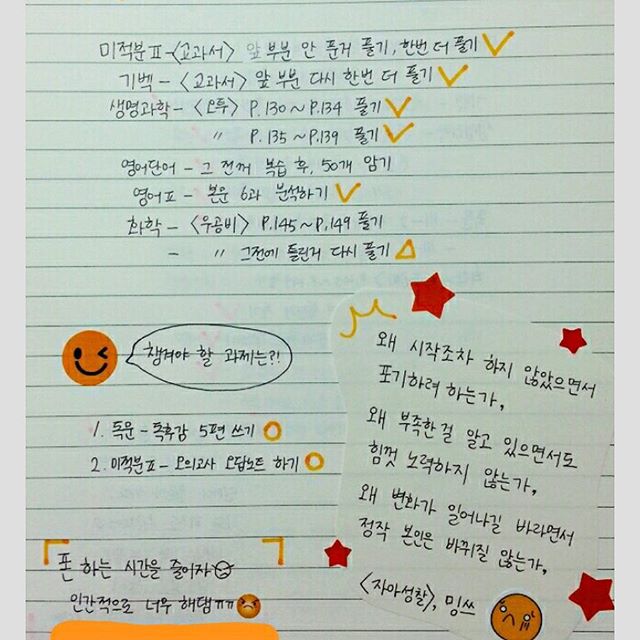 미적분Ⅱ-<교과서> 앞 부분 안 푼거 풀기, 한번 더 풀기
기벡 - <교과서> 앞 부분 다시 한번 더 풀기
생명과학 - <오투> P.130 ~ P.134 풀기
〃 P.135 ~ P.139 풀기
영어단어 - 그 전꺼 복습 후, 50개 암기
영어Ⅱ - 본문 6과 분석하기
화학 - <우공비> P.145 ~ P.149 풀기
- 〃 그전에 틀린거 다시 풀기
챙겨야 할 과제는?!
1. 독문 - 독후감 5편 쓰기
2. 미적분Ⅱ - 모의고사 오답노트 하기
폰 하는 시간을 줄이자
인간적으로 너무 해댐ㅠㅠ
왜 시작조차 하지 않았으면서
포기하려 하는가,
왜 부족한걸 알고 있으면서도
힘껏 노력하지 않는가,
왜 변화가 일어나길 바라면서
정작 본인은 바뀌질 않는가,
<자아성찰>, 밍쓰